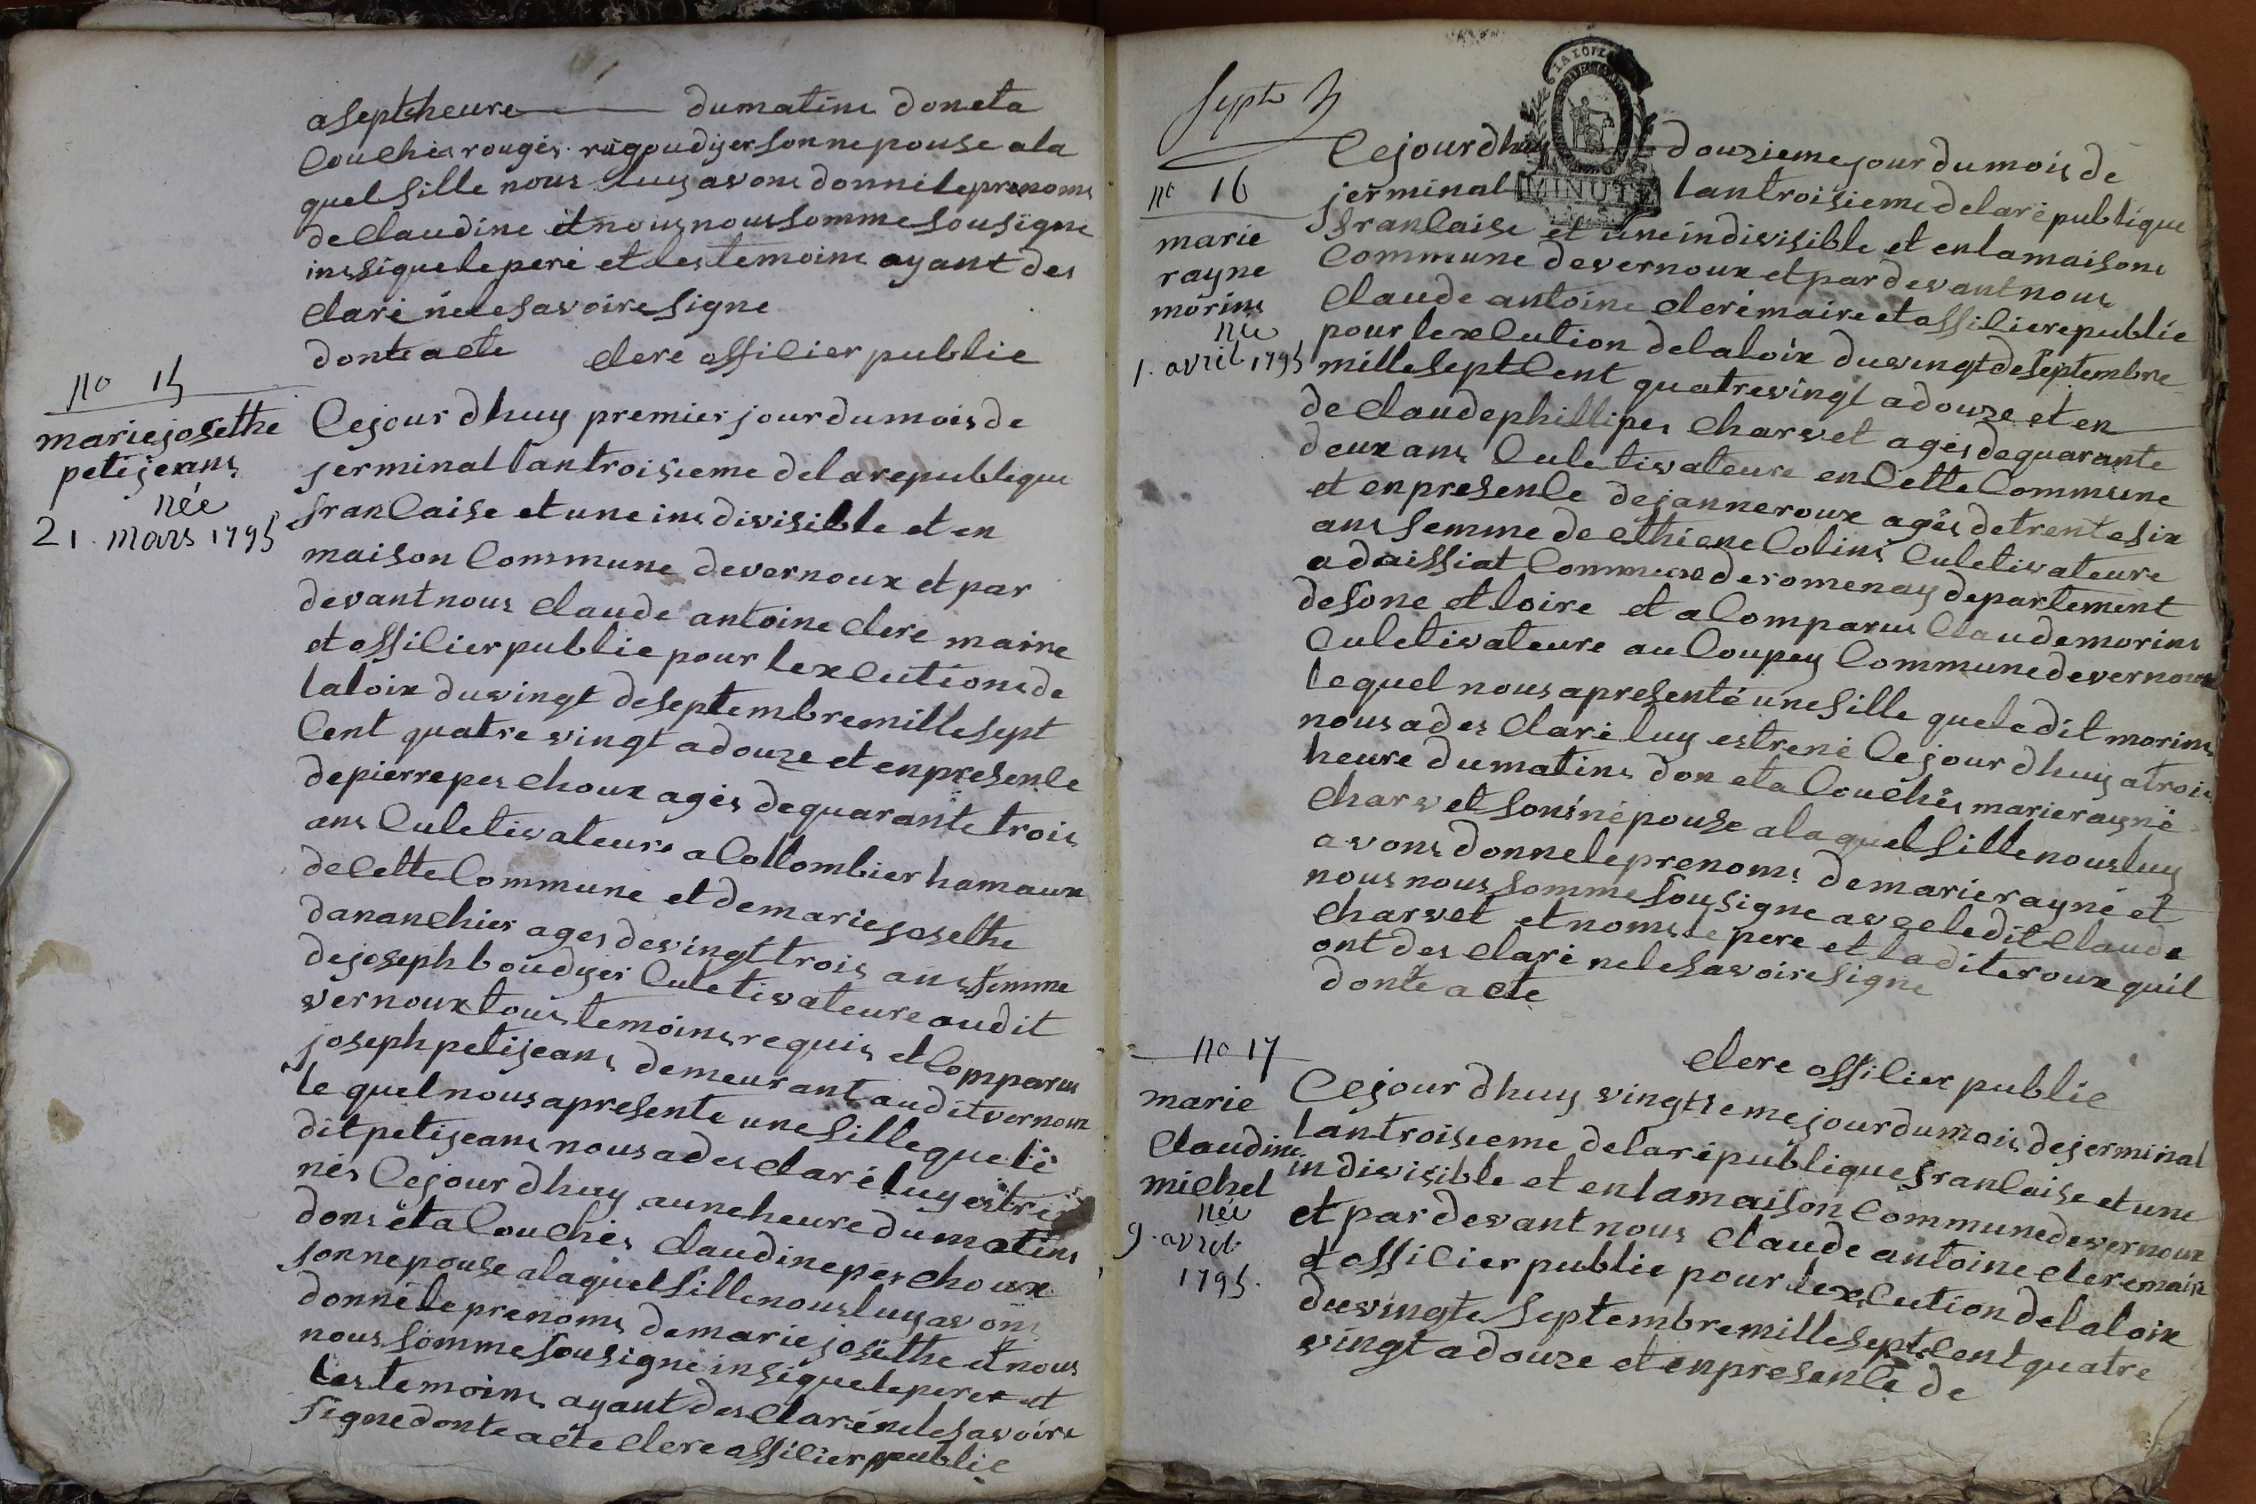 a septe heure du matine don eta
Couchés rougés rigoudyer sonnepouse a la
quel fille nous luy avons donné le prenoms
de Claudine et nous nous somme sousigne
insique le peré et les temoins ayant des
claré ne le savoire signe
donte acte clere offilier publie
no 15
marie josethe
petijeans
née
21. mars 1795
Cejour dhuy premier jour du mois de
jerminal lan troisieme de la republique
francaise et une indivisible et en
maison Commune de vernoux et par
devant nous Claude antoine clere maire
et offilier publie pour lexlutions de
la loix du vingt de septembre mille sept
Cent quatre vingt a douze et en presenle
de pierre perchoux agés de quarante trois
ans Culetivateurs a Collombier hamaux
de Cette Commune et de marie josethe
dananchier ages de vingt trois ans femme
de joseph boudyer Culetivateure audit
vernoux tous temoins requis et Comparus
joseph petijeans demeurant audit vernoux
le quel nous a presente une fille que lé
dit petijeans nous a des claré luy estre
nés Cejour dhuy a une heure du matins
dons eta Couchés Claudine perchoux
sonnepouse a la quel fille nous luy avons
donné le prenoms de marie josethe et nous
nous somme sousigné insique le pere et
les temoins ayant des claré ne le savoire
signe donte acte clere offilier publie
Septe
no 16
marie
rayne
morins
née
1. avril 1795
Cejour dhuy douzieme jour du mois de
LA LOI
MINUTE
jerminal lan troisieme de la republique
francaise et une indivisible et en la maisons
Commune de vernoux et par devant nous
Claude antoine cleré maire et offilier publie
pour lexlution de la loix du vingt de septembre
mille sept Cent quatre vingt a douze et en
de Claude phillipes Charvet agés de quarante
deux ans Culetivateure en Cette Commune
et en presenle de janne roux agés de trente six
ans femme de ethiene Colins Culetivateure
a daissiat Commune de romenay departement
de sone et loire et a Comparus Claude morins
Culetivateure au Coupey Commune de vernoux
le quel nous a presenté une fille que le dit morins
nous a des claré luy estre né Cejour dhuy a trois
heure du matins don eta Couchés marie rayné
Charvet sonnépouse a la quel fille nous luy
avons donné le prenoms de marie rayné et
nous nous somme sousigne avec le dit Claude
Charvet et noms le pere et la dite roux quil
ont des claré ne le savoire signe
donte acte
clere offilier publie
no 17
marie
Claudine
michel
née
9. avril
1795.
Cejour dhuy vingtieme jour du mois de jerminal
lan troisieme de la république francaise et une
indivisible et en la maison Commune de vernoux
et par devant nous Claude antoine clere maire
et offilier publie pour lexlution de la loix
du vingte septembre mille sept Cent quatre
vingt a douze et en presenle de